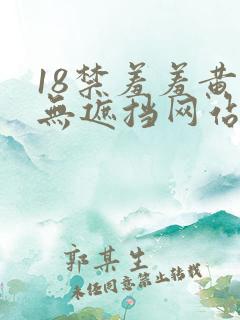 18禁羞羞黄
無遮挡网佔
郭某生
未经同意禁止转载